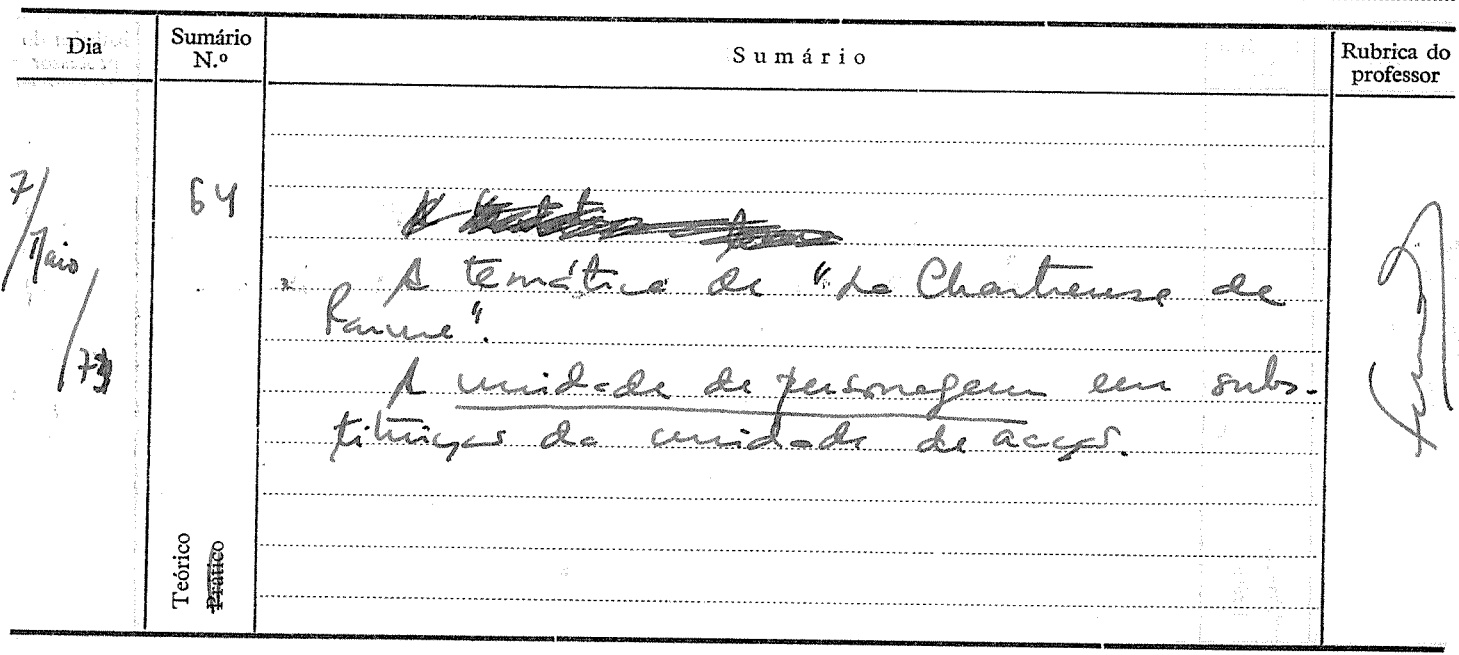 Dia
Sumário N.º
Sumário
Rubrica do professor
7/Maio/73
64
A temática de "La Chartreuse de
Parme".
A unidade de personagem em subs-
tituição da unidade de acção.
Teórico
Prático